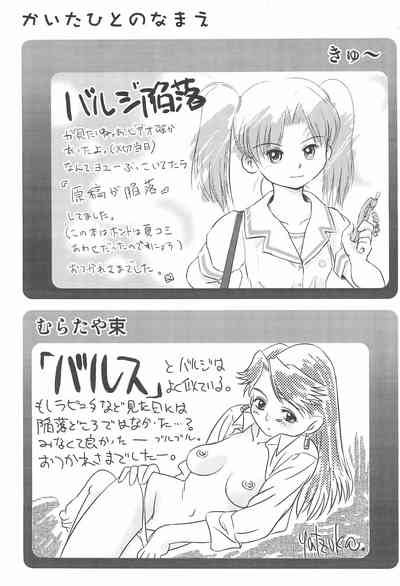 かいたひとのなまえ
きゅ～
バルジ陥落
が見たいねぇ。お、ビデオ確か
あったよ。(〆切当日)
なんてヨユーぶっこいてたら
『原稿が陥落』
してました。
(この本はホントは夏コミ
あわせだったのでしょう)
おつかれさまでした。
むらたや束
「バルス」とバルジは
よく似ている。
もしラピュタなど見た日には
陥落どころではなかった…?
みなくて良かったー ブルブル。
おつかれさまでしたー。
yatsuka